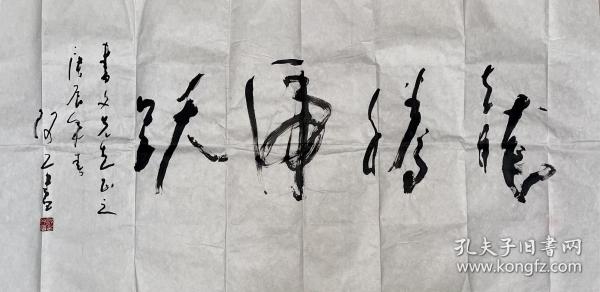 龙腾虎跃
書文先生正之
庚辰年書
孔夫子旧书网
www.kongfz.com